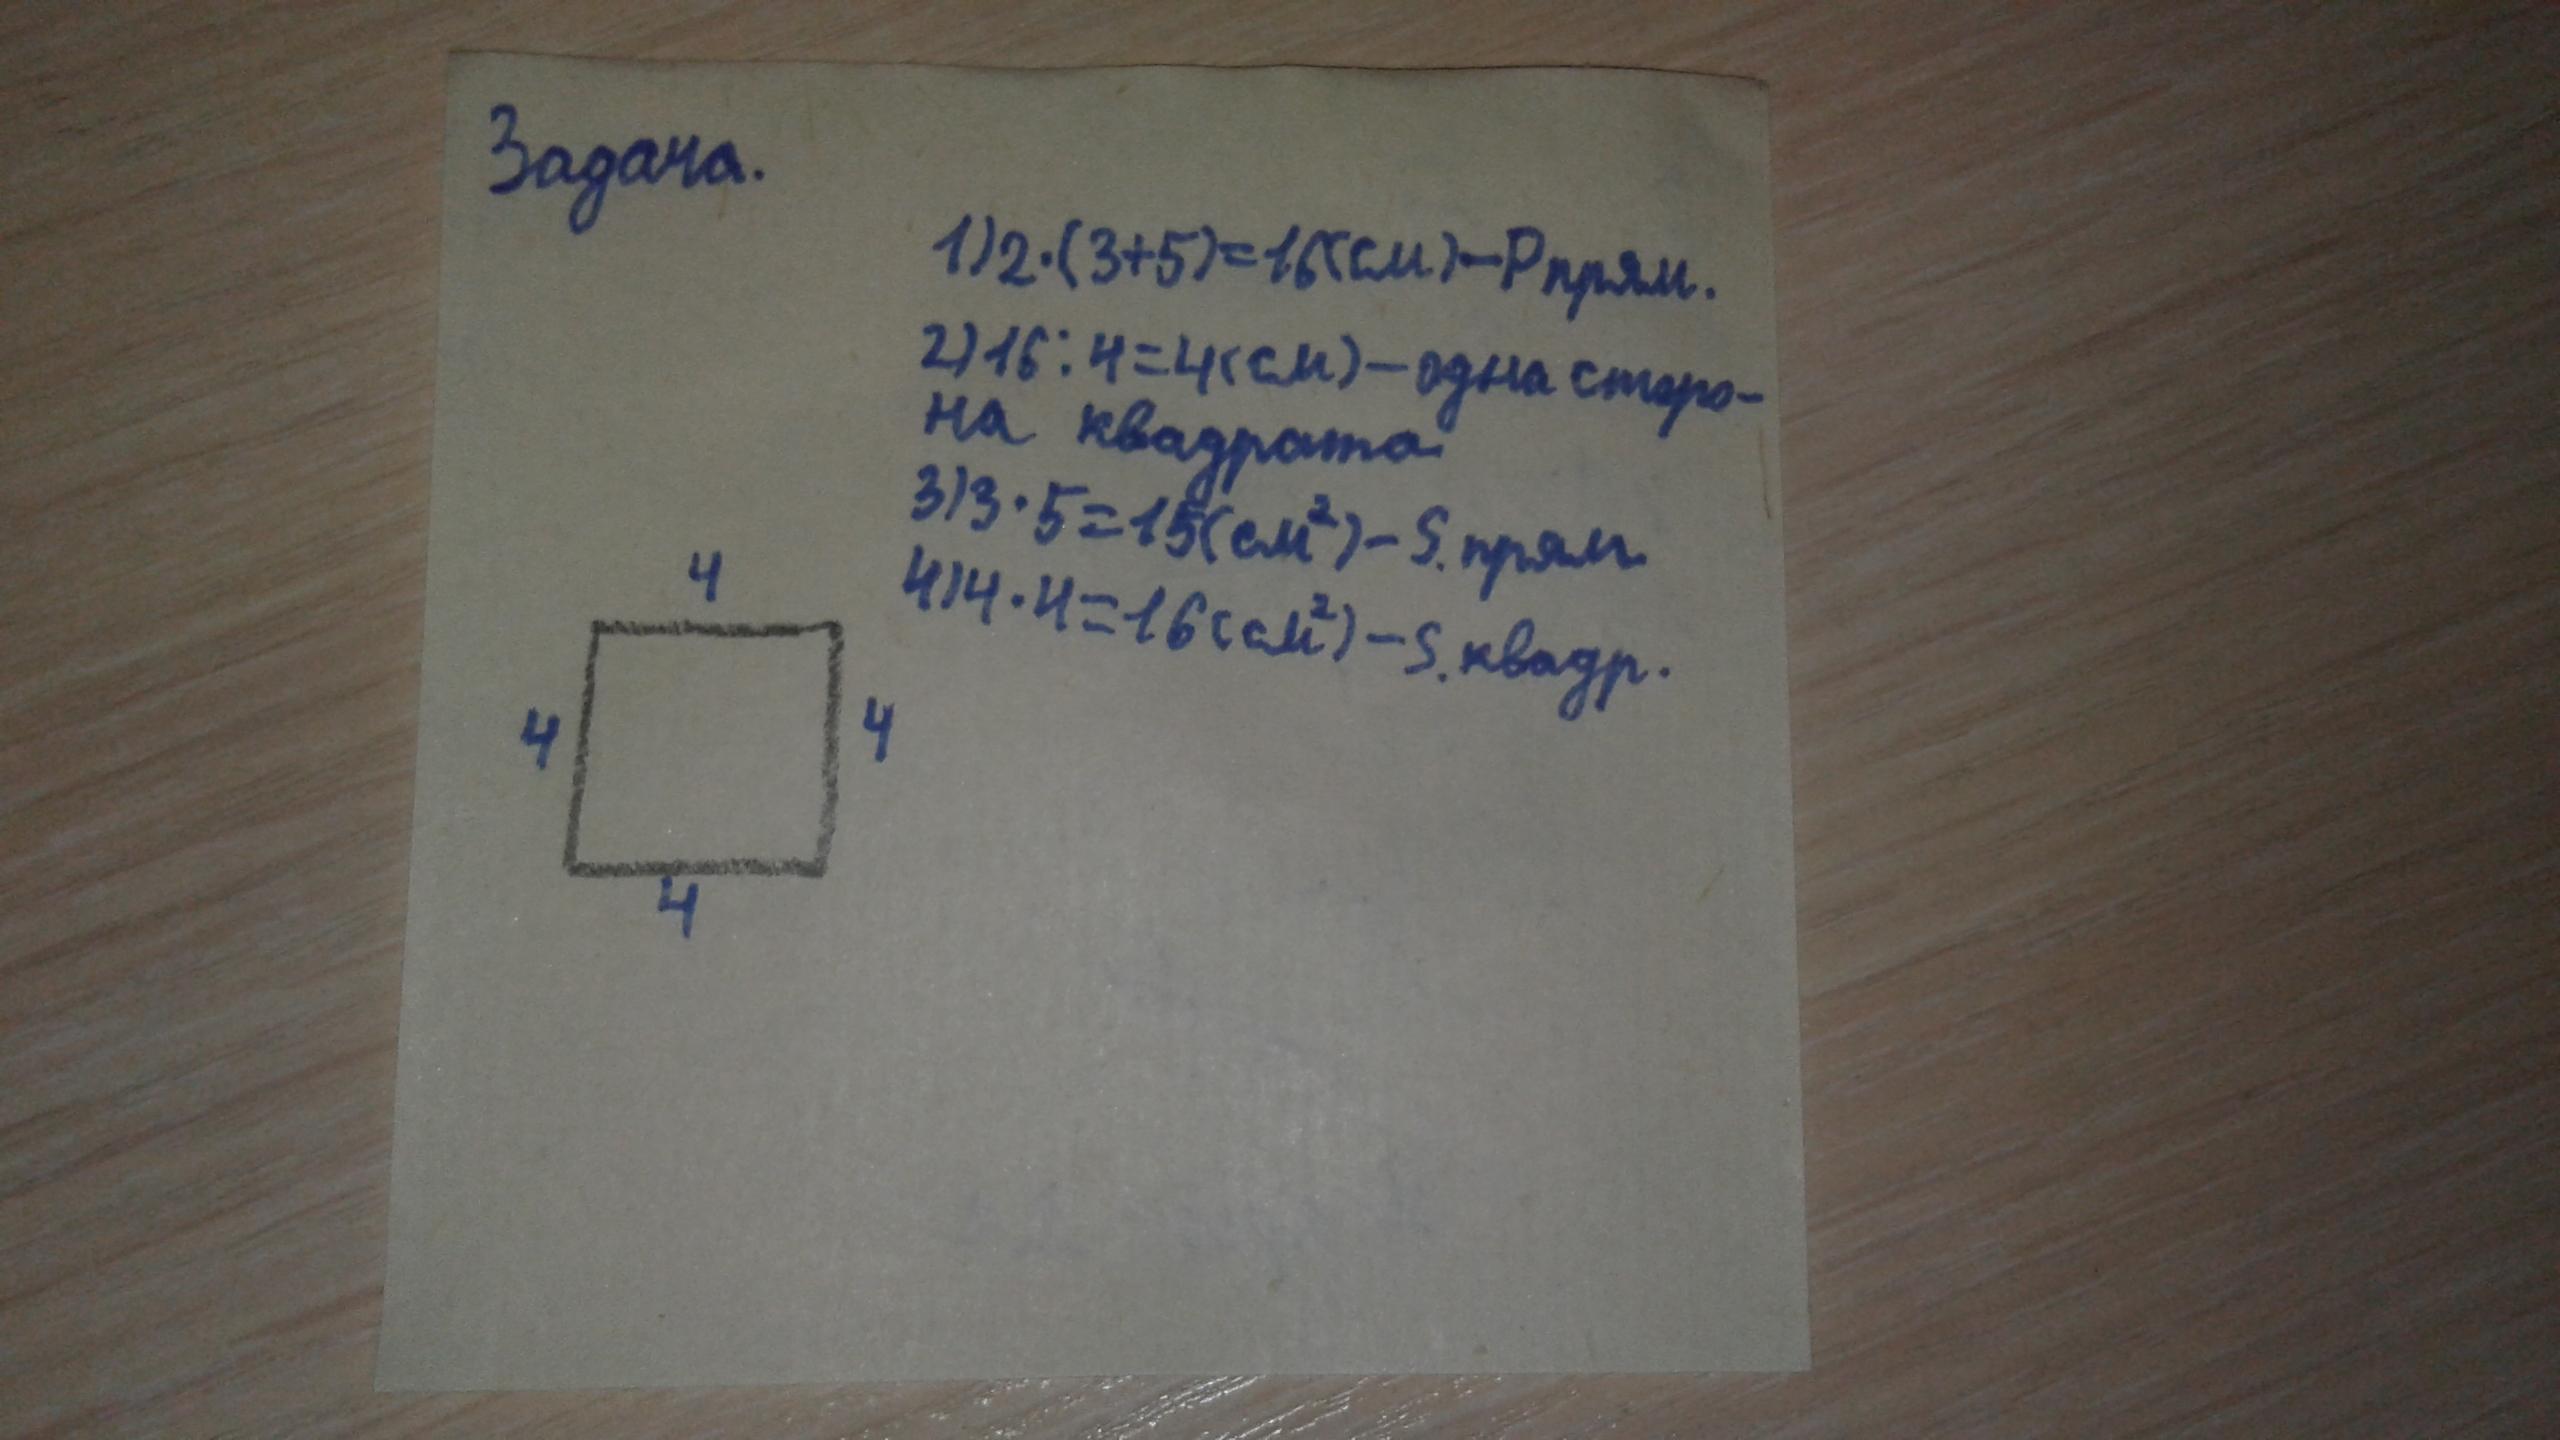 Задача.
1) 2·(3+5)=16(см)-Pпрям.
2) 16:4=4(см)-одна сторо-
на квадрата
3) 3·5=15(см²)-S.прям.
4) 4·4=16(см²)-S.квадр.
4
4
4
4